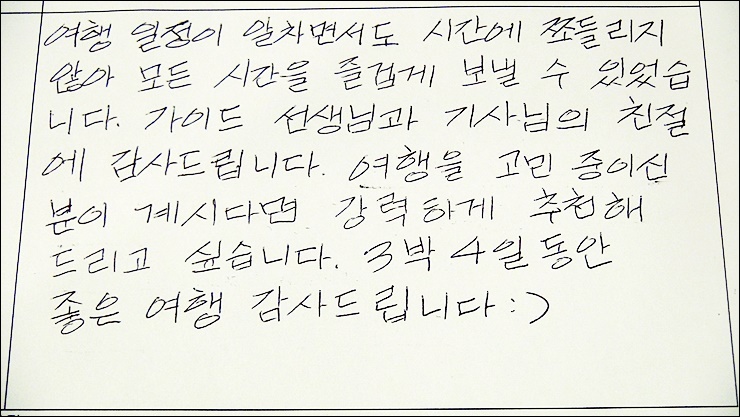 여행 일정이 알차면서도 시간에 쪼들리지
않아 모든 시간을 즐겁게 보낼 수 있었습
니다. 가이드 선생님과 기사님의 친절
에 감사드립니다. 여행을 고민 중이신
분이 계시다면 강력하게 추천해
드리고 싶습니다. 3박 4일 동안
좋은 여행 감사드립니다 :)